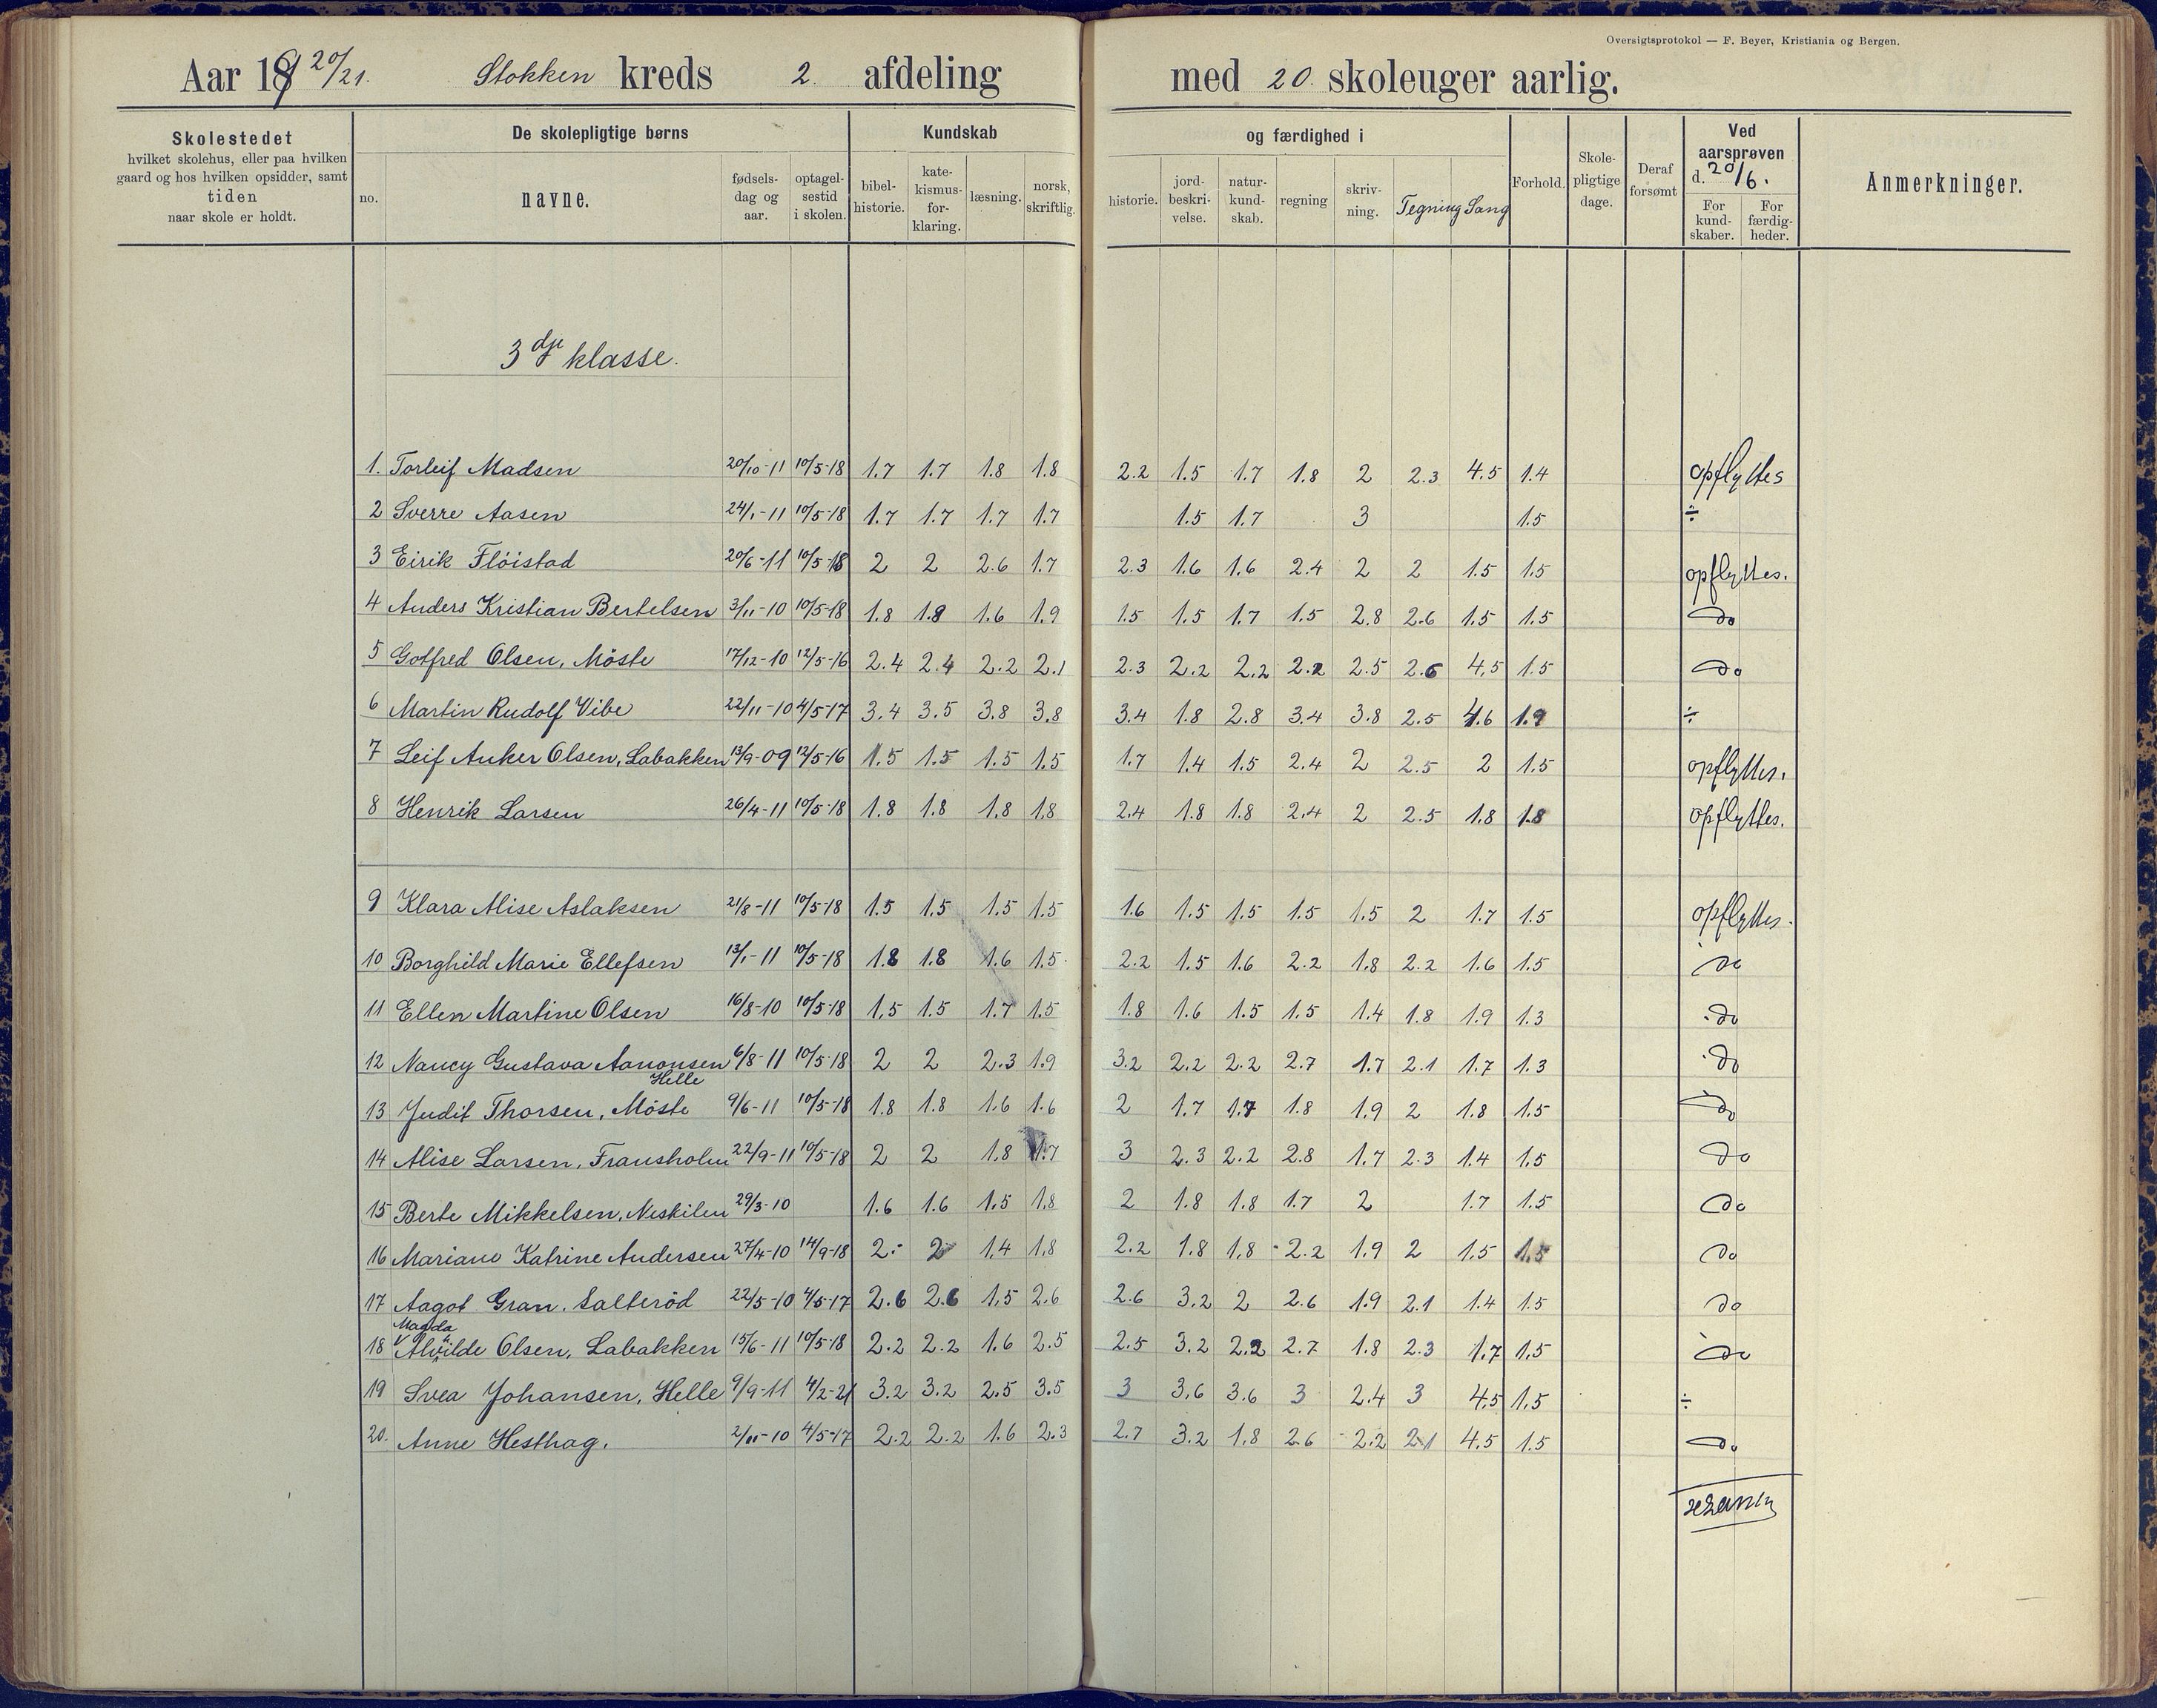 Oversigtsprotokol — F. Beyer, Kristiania og Bergen.
Aar 19 20/21. Stokken kreds 2. afdeling med 20. skoleuger aarlig.
Skolestedet
hvilket skolehus, eller paa hvilken
gaard og hos hvilken opsidder, samt
tiden
naar skole er holdt.
De skolepligtige børns
no.
navne.
fødsels-
dag og
aar.
optagel-
sestid
i skolen.
Kundskab
bibel-
historie.
kate-
kismus-
for-
klaring.
læsning.
norsk,
skriftlig.
og færdighed i
historie.
jord-
beskri-
velse.
natur-
kund-
skab.
regning
skriv-
ning.
Tegning
Sang
Forhold.
Skole-
pligtige
dage.
Deraf
forsømt
Ved
aarsprøven
d. 20/6.
For
kund-
skaber.
For
færdig-
heder.
Anmerkninger.
3dje klasse.
1. Torleif Madsen 20/10-11 10/5-18 1.7 1.7 1.8 1.8 2.2 1.5 1.7 1.8 2 2.3 4.5 1.4 opflyttes
2 Sverre Aasen 24/1-11 10/5-18 1.7 1.7 1.7 1.7 1.5 1.7 3 1.5 ÷
3 Eirik Flöistad 20/6-11 10/5-18 2 2 2.6 1.7 2.3 1.6 1.6 2.4 2 2 1.5 1.5 opflyttes.
4 Anders Kristian Bertelsen 3/11-10 10/5-18 1.8 1.8 1.6 1.9 1.5 1.5 1.7 1.5 2.8 2.6 1.5 1.5 do
5 Gotfred Olsen, Möste 17/12-10 12/5-16 2.4 2.4 2.2 2.1 2.3 2.2 2.2 2.2 2.5 2.6 4.5 1.5 do
6 Martin Rudolf Vibe 22/11-10 4/5-17 3.4 3.5 3.8 3.8 3.4 1.8 2.8 3.4 3.8 2.5 4.6 1.9 ÷
7 Leif Anker Olsen, Labakken 13/9-09 12/5-16 1.5 1.5 1.5 1.5 1.7 1.4 1.5 2.4 2 2.5 2 1.5 opflyttes.
8 Henrik Larsen 26/4-11 10/5-18 1.8 1.8 1.8 1.8 2.4 1.8 1.8 2.4 2 2.5 1.8 1.8 opflyttes.
9 Klara Alise Aslaksen 21/8-11 10/5-18 1.5 1.5 1.5 1.5 1.6 1.5 1.5 1.5 1.5 2 1.7 1.5 opflyttes.
10 Borghild Marie Ellefsen 13/1-11 10/5-18 1.8 1.8 1.6 1.5 2.2 1.5 1.6 2.2 1.8 2.2 1.6 1.5 do
11 Ellen Martine Olsen 16/8-10 10/5-18 1.5 1.5 1.7 1.5 1.8 1.6 1.5 1.5 1.4 1.8 1.9 1.3 do
12 Nancy Gustava Aanonsen 6/8-11 10/5-18 2 2 2.3 1.9 3.2 2.2 2.2 2.7 1.7 2.1 1.7 1.3 do
Helle
13 Judit Thorsen, Möste 9/6-11 10/5-18 1.8 1.8 1.6 1.6 2 1.7 1.7 1.8 1.9 2 1.8 1.5 do
14 Alise Larsen, Fransholm 22/9-11 10/5-18 2 2 1.8 1.7 3 2.3 2.2 2.8 1.7 2.3 1.4 1.5 do
15 Berte Mikkelsen, Neskilen 29/3-10 1.6 1.6 1.5 1.8 2 1.8 1.8 1.7 2 1.7 1.5 do
16 Mariane Katrine Andersen 27/4-10 14/9-18 2 2 1.4 1.8 2.2 1.8 1.8 2.2 1.9 2 1.5 1.5 do
17 Aagot Gran, Salteröd 22/5-10 4/5-17 2.6 2.6 1.5 2.6 2.6 3.2 2 2.6 1.9 2.1 1.4 1.5 do
Magda
18 Alvilde Olsen, Labakken 15/6-11 10/5-18 2.2 2.2 1.6 2.5 2.5 3.2 2.2 2.7 1.8 2.3 1.7 1.5 do
19 Svea Johansen, Helle 9/9-11 4/2-21 3.2 3.2 2.5 3.5 3 3.6 3.6 3 2.4 3 4.5 1.5 ÷
20. Anne Hesthag. 2/11-10 4/5-17 2.2 2.2 1.6 2.3 2.7 3.2 1.8 2.6 2.2 2.1 4.5 1.5 do